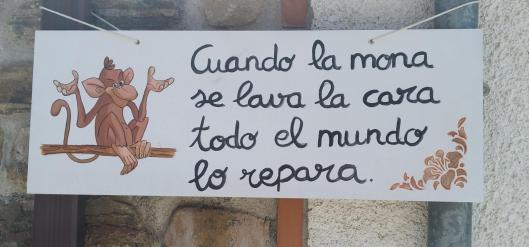 Cuando la mona
se lava la cara
todo el mundo
lo repara.